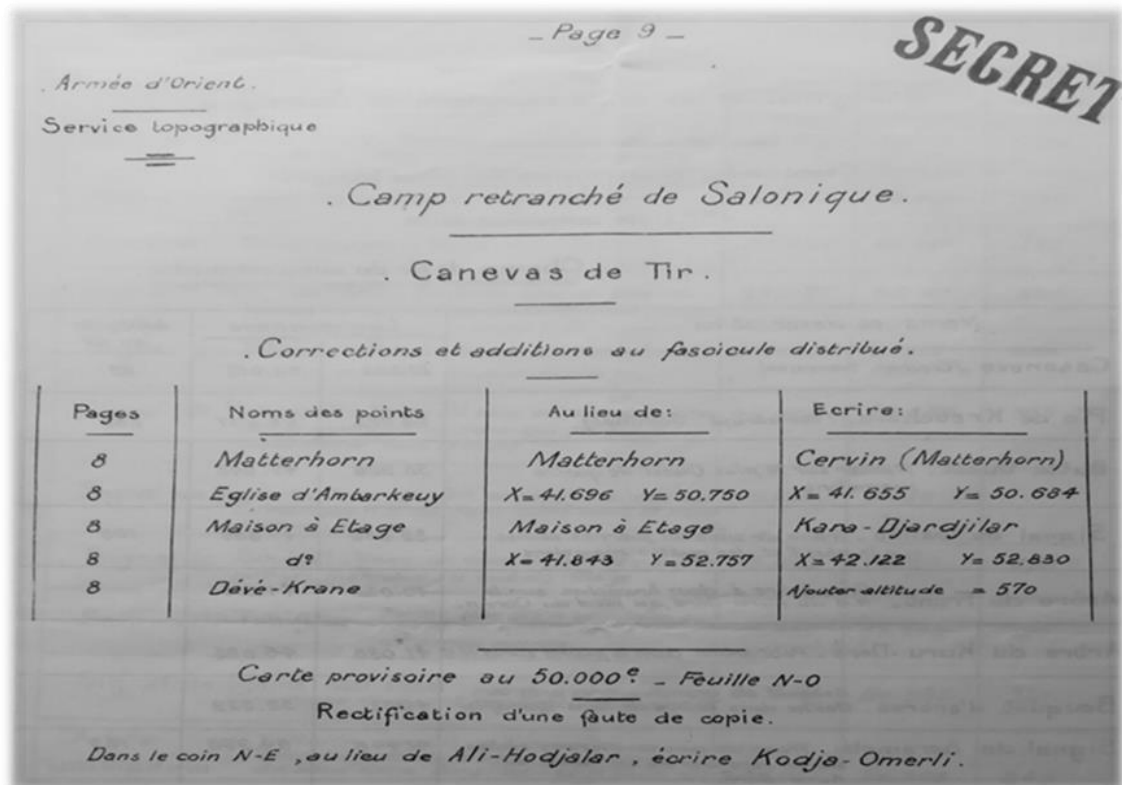 _ Page 9 _
SECRET
. Armée d'Orient.
Service topographique
. Camp retranché de Salonique.
. Canevas de Tir.
. Corrections et additions au fascicule distribué.
Pages Noms des points Au lieu de: Ecrire:
8 Matterhorn Matterhorn Cervin (Matterhorn)
8 Eglise d'Ambarkeuy X=41.696 Y=50.750 X=41.655 Y=50.684
8 Maison à Etage Maison à Etage Kara-Djardjilar
8 dº X=41.843 Y=52.757 X=42.122 Y=52.830
8 Dévé-Krane Ajouter altitude = 570
Carte provisoire au 50.000e. _ Feuille N-O
Rectification d'une faute de copie.
Dans le coin N-E, au lieu de Ali-Hodjalar, écrire Kodja-Omerli.